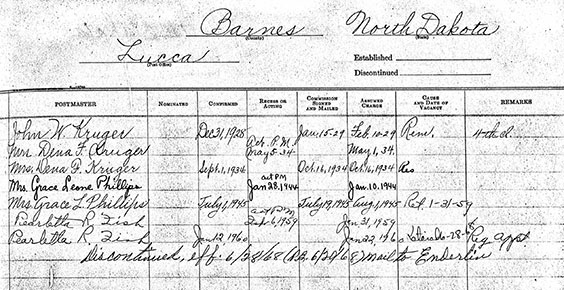 Barnes North Dakota
(County) (State)
Lucca Established
(Post Office)
Discontinued
POSTMASTER NOMINATED CONFIRMED RECESS OR ACTING COMMISSION SIGNED AND MAILED ASSUMED CHARGE CAUSE AND DATE OF VACANCY REMARKS
John W. Kruger Dec 21, 1928 Jan. 15-29 Feb. 10-29 Rem. 4th cl.
Mrs. Dena F. Kruger Act. P.M. May 5-34 May 1, 34
Mrs. Dena F. Kruger Sept. 1, 1934 Oct. 16, 1934 Oct. 16, 1934 Res
Mrs. Grace Leone Phillips act PM Jan 28, 1944 Jan. 10, 1944
Mrs. Grace L. Phillips July 1, 1945 July 19, 1945 Aug. 1, 1945 Ret. 1-31-59
Pearletta R. Fish act PM 1959 Jan 31, 1959
Pearletta R. Fish Jan 12, 1960 Jan 22, 196 Reg Appt
Discontinued, eff. 6/28/68 Mail to Enderlin